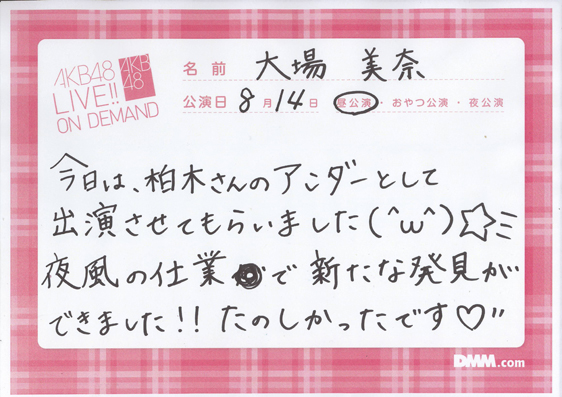 AKB48
LIVE!!
ON DEMAND
AKB
48
名前 大場 美奈
公演日 8月14日 昼公演・おやつ公演・夜公演
今日は、柏木さんのアンダーとして
出演させてもらいました(^ω^)☆
夜風の仕業で新たな発見が
できました!!たのしかったです♡
DMM.com